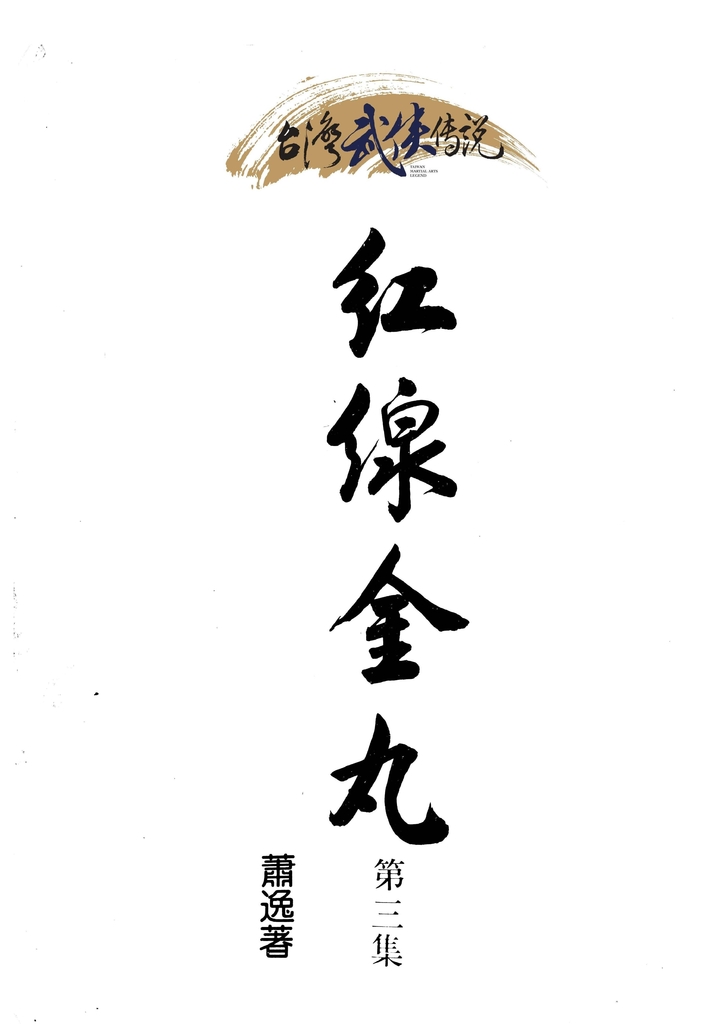 台灣武俠傳說
TAIWAN
MARTIAL ARTS
LEGEND
紅線金丸
第三集
蕭逸著